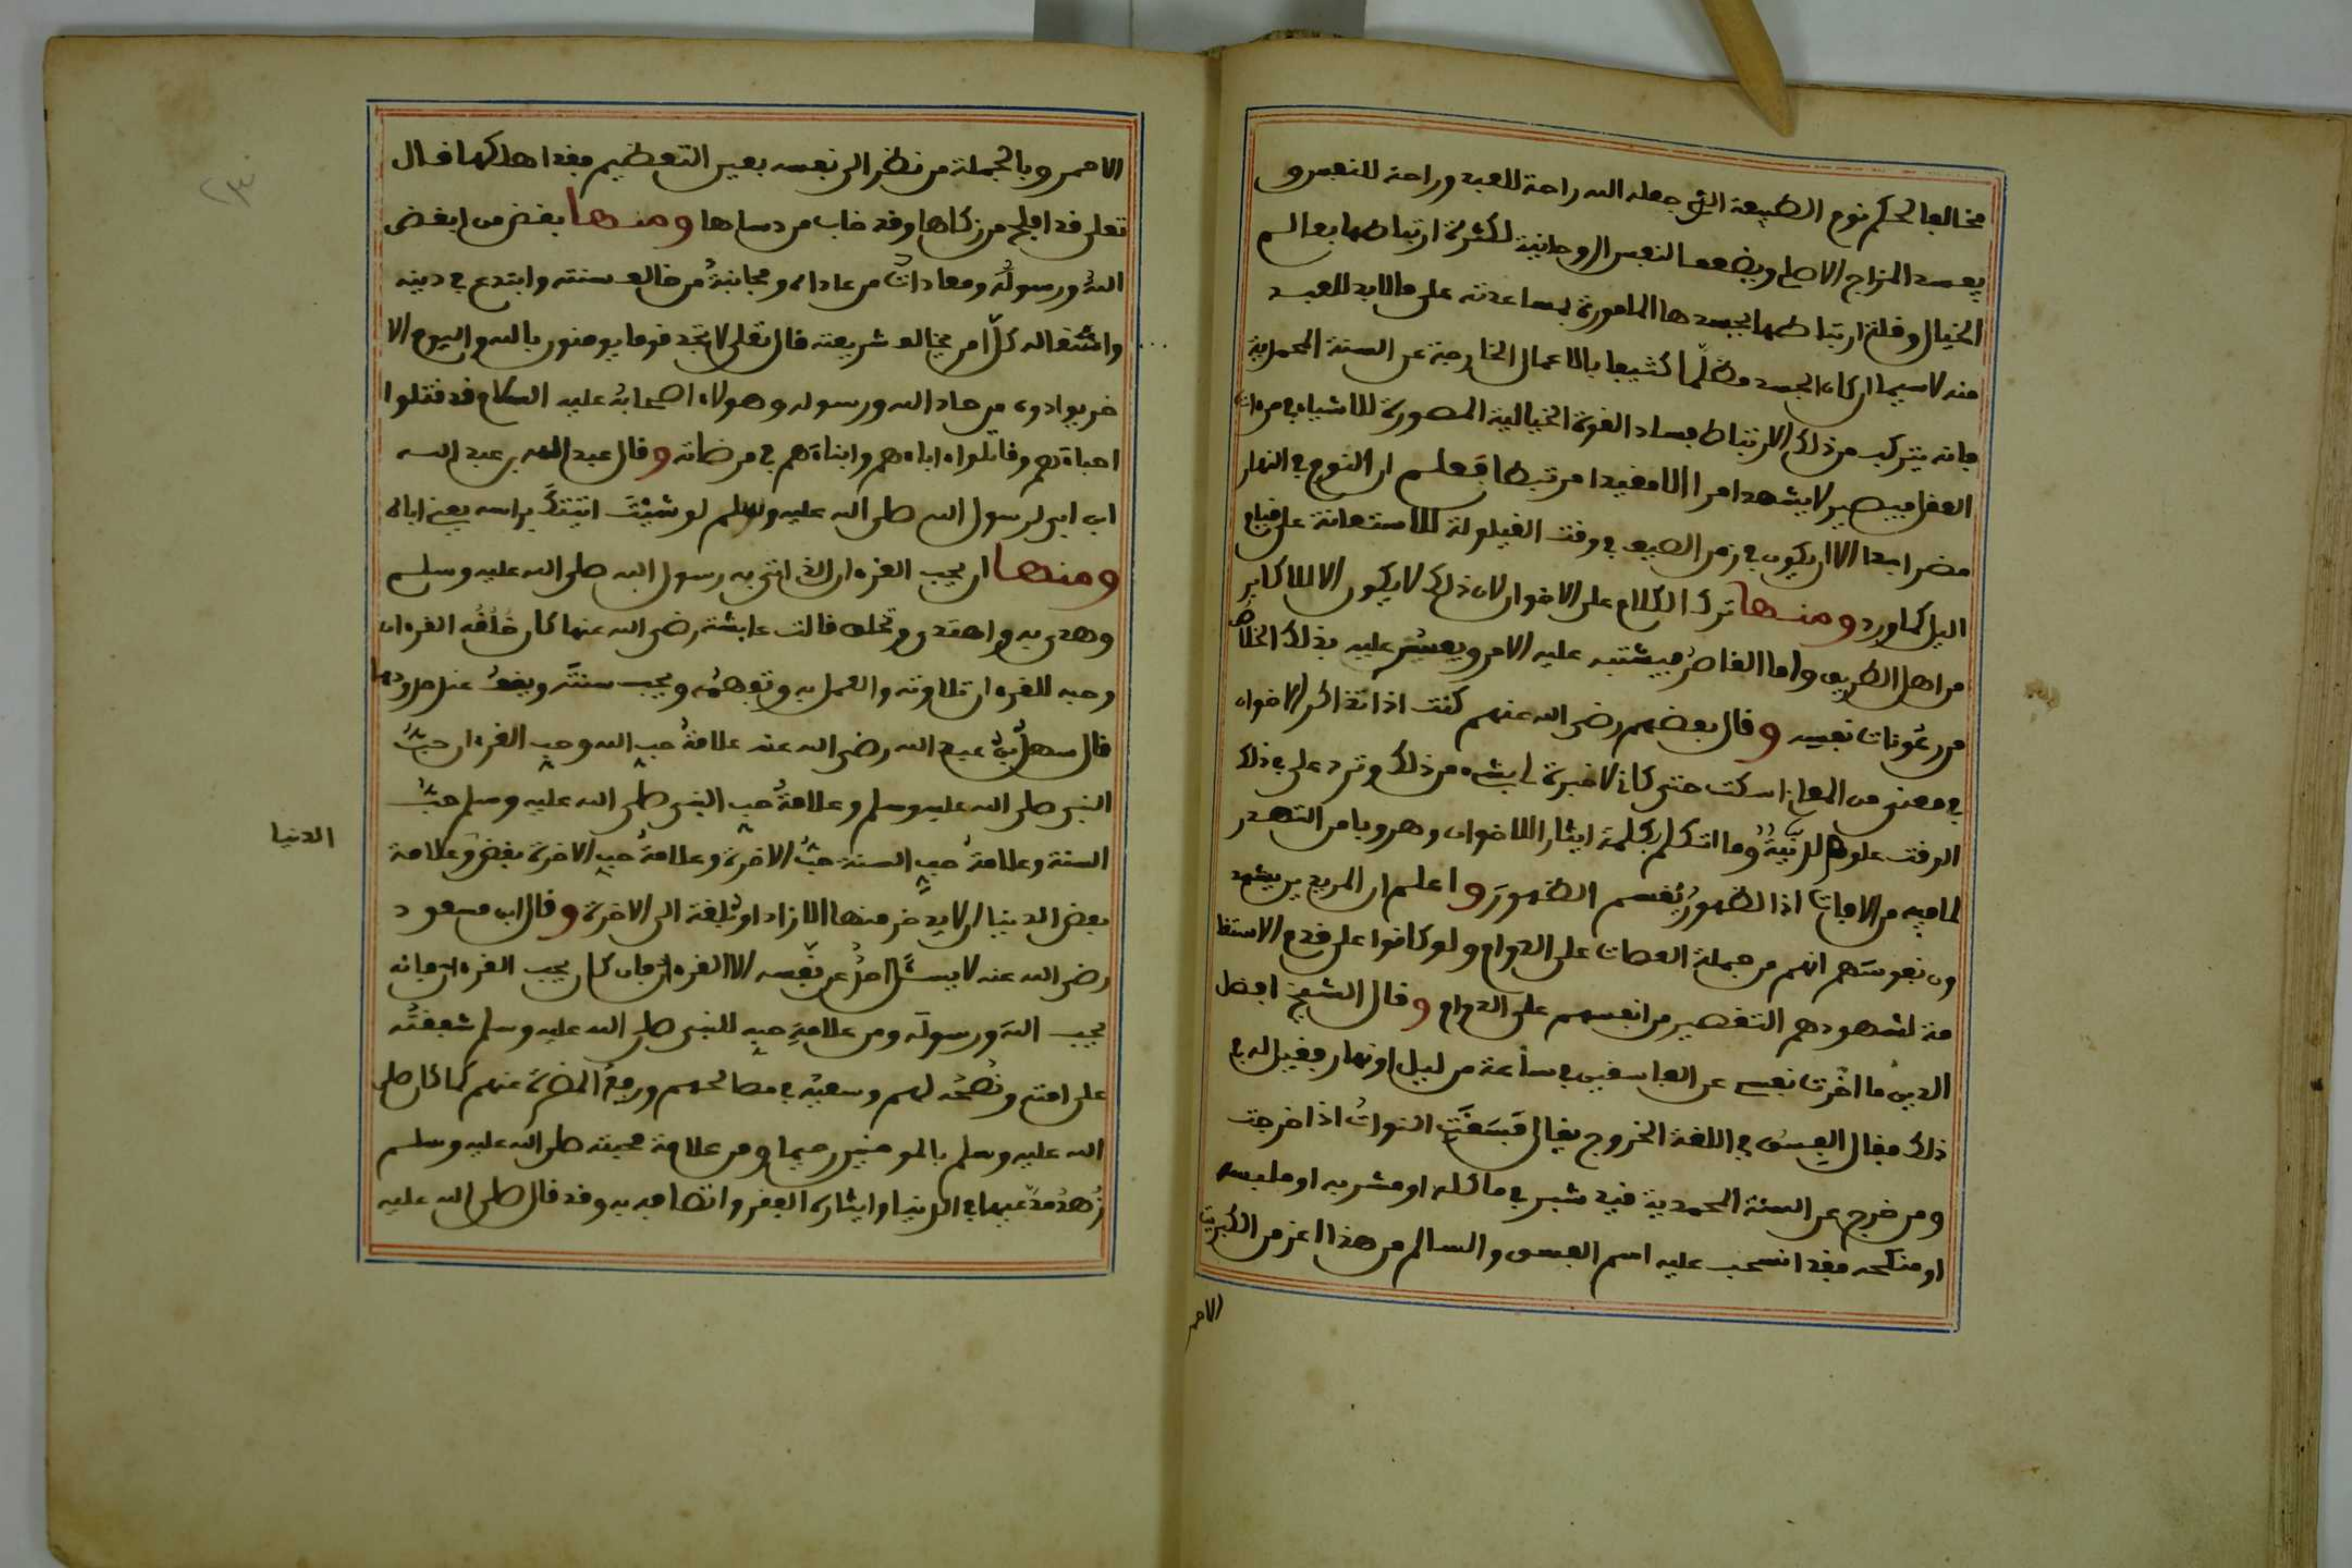 مخالفا لحكم نوم الطبيعة الذي جعله الله راحة للعبد وراحة للنفس و
يفسد المزاج الاصلي ويضعف النفس الروحانية لكثرة ارتباطها بعالم
الخيال وقلة ارتباطها بجسدها المامورة بمساعدته على ما لابد للعبد
منه لاسيما ان كان الجسد مظلما كثيفا بالاعمال الخارجة عن السنة المحمدية
فانه يتركب من ذلك الارتباط فساد القوة الخيالية المصورة للاشياء في مرءات
العقل فيصير لا يشهد امرا الا مقيدا مرتبطا فعلم ان النوم في النهار
مضر ابدا الا ان يكون في زمن الصيف في وقت القيلولة للاستعانة على قيام
اليل كما ورد ومنها ترك الكلام على الاخوان لان ذلك لا يكون الا للاكابر
من اهل الطريق واما القاصر فيشتبه عليه الامر ويعيش عليه بذلك الخلاص
من رعونات نفسه وقال بعضهم رضي الله عنهم كنت اذا تذاكر الاخوان
في معنى من المعاني اسكت حتى كاني لا خبرة لي بشيء من ذلك وترد علي في ذلك
الوقت علوم لدنية وما اتكلم بكلمة ايثارا للاخوان وهروبا من التصدر
لما فيه من الافات اذ الظهور يقسم الظهور واعلم ان المريدين يشهد
ون نفوسهم انهم من جملة العصات على الدوام ولو كانوا على قدم الاستقا
مة لشهودهم التقصير من انفسهم على الدوام وقال الشيخ افضل
الدين ما اخرت نفسي عن الفاسقين في ساعة من ليل او نهار فقيل له في
ذلك فقال الفسق في اللغة الخروج يقال فسقت النوات اذا خرجت
ومن خرج عن السنة المحمدية قيد شبر في ماكله او مشربه او ملبسه
او منكحه فقد انسحب عليه اسم الفسق والسالم من هذا اعز من الكبريت
الاحمر
الاحمر وبالجملة من نظر الى نفسه بعين التعظيم فقد اهلكها قال
تعلى قد افلح من زكاها وقد خاب من دساها ومنها بغض من ابغض
الله ورسوله ومعادات من عاداه ومجانبة من خالف سنته وابتدع في دينه
واستثقاله كل امر يخالف شريعته قال تعلى لا تجد قوما يومنون بالله واليوم الا
خر يوادون من حاد الله ورسوله وهولاء اصحابه عليه السلام قد قتلوا
احباءهم وقاتلوا ءاباءهم وابناءهم في مرضاته وقال عبد الله بن عبد الله
ابن ابي لرسول الله صلى الله عليه وسلم لو شيت اتيتك براسه يعني اباه
ومنها ان يحب القرءان الذي اتى به رسول الله صلى الله عليه وسلم
وهدى به واهتدى وتخلق قالت عايشة رضي الله عنها كان خلقه القرءان
وحبه للقرءان تلاوته والعمل به وتفهمه ويحب سنته ويقف عند حدودها
قال سهل بن عبد الله رضي الله عنه علامة حب الله حب القرءان وعلامة حب
النبي صلى الله عليه وسلم وعلامة حب النبي صلى الله عليه وسلم حب
السنة وعلامة حب السنة حب الاخرة وعلامة حب الاخرة بغض وعلامة
الدنيا
بغض الدنيا ان لا يدخر منها الا زادا وبلغة الى الاخرة وقال ابن مسعود
رضي الله عنه لا يسئل احد عن نفسه الا القرءان فان كان يحب القرءان فانه
يحب الله ورسوله ومن علامة حبه للنبي صلى الله عليه وسلم شفقته
على امته ونصحه لهم وسعيه في مصالحهم ورفع المضرة عنهم كما كان صلى
الله عليه وسلم بالمومنين رحيما ومن علامة محبته صلى الله عليه وسلم
زهد مدعيها في الدنيا وايثاره الفقر واتصافه به وقد قال صلى الله عليه